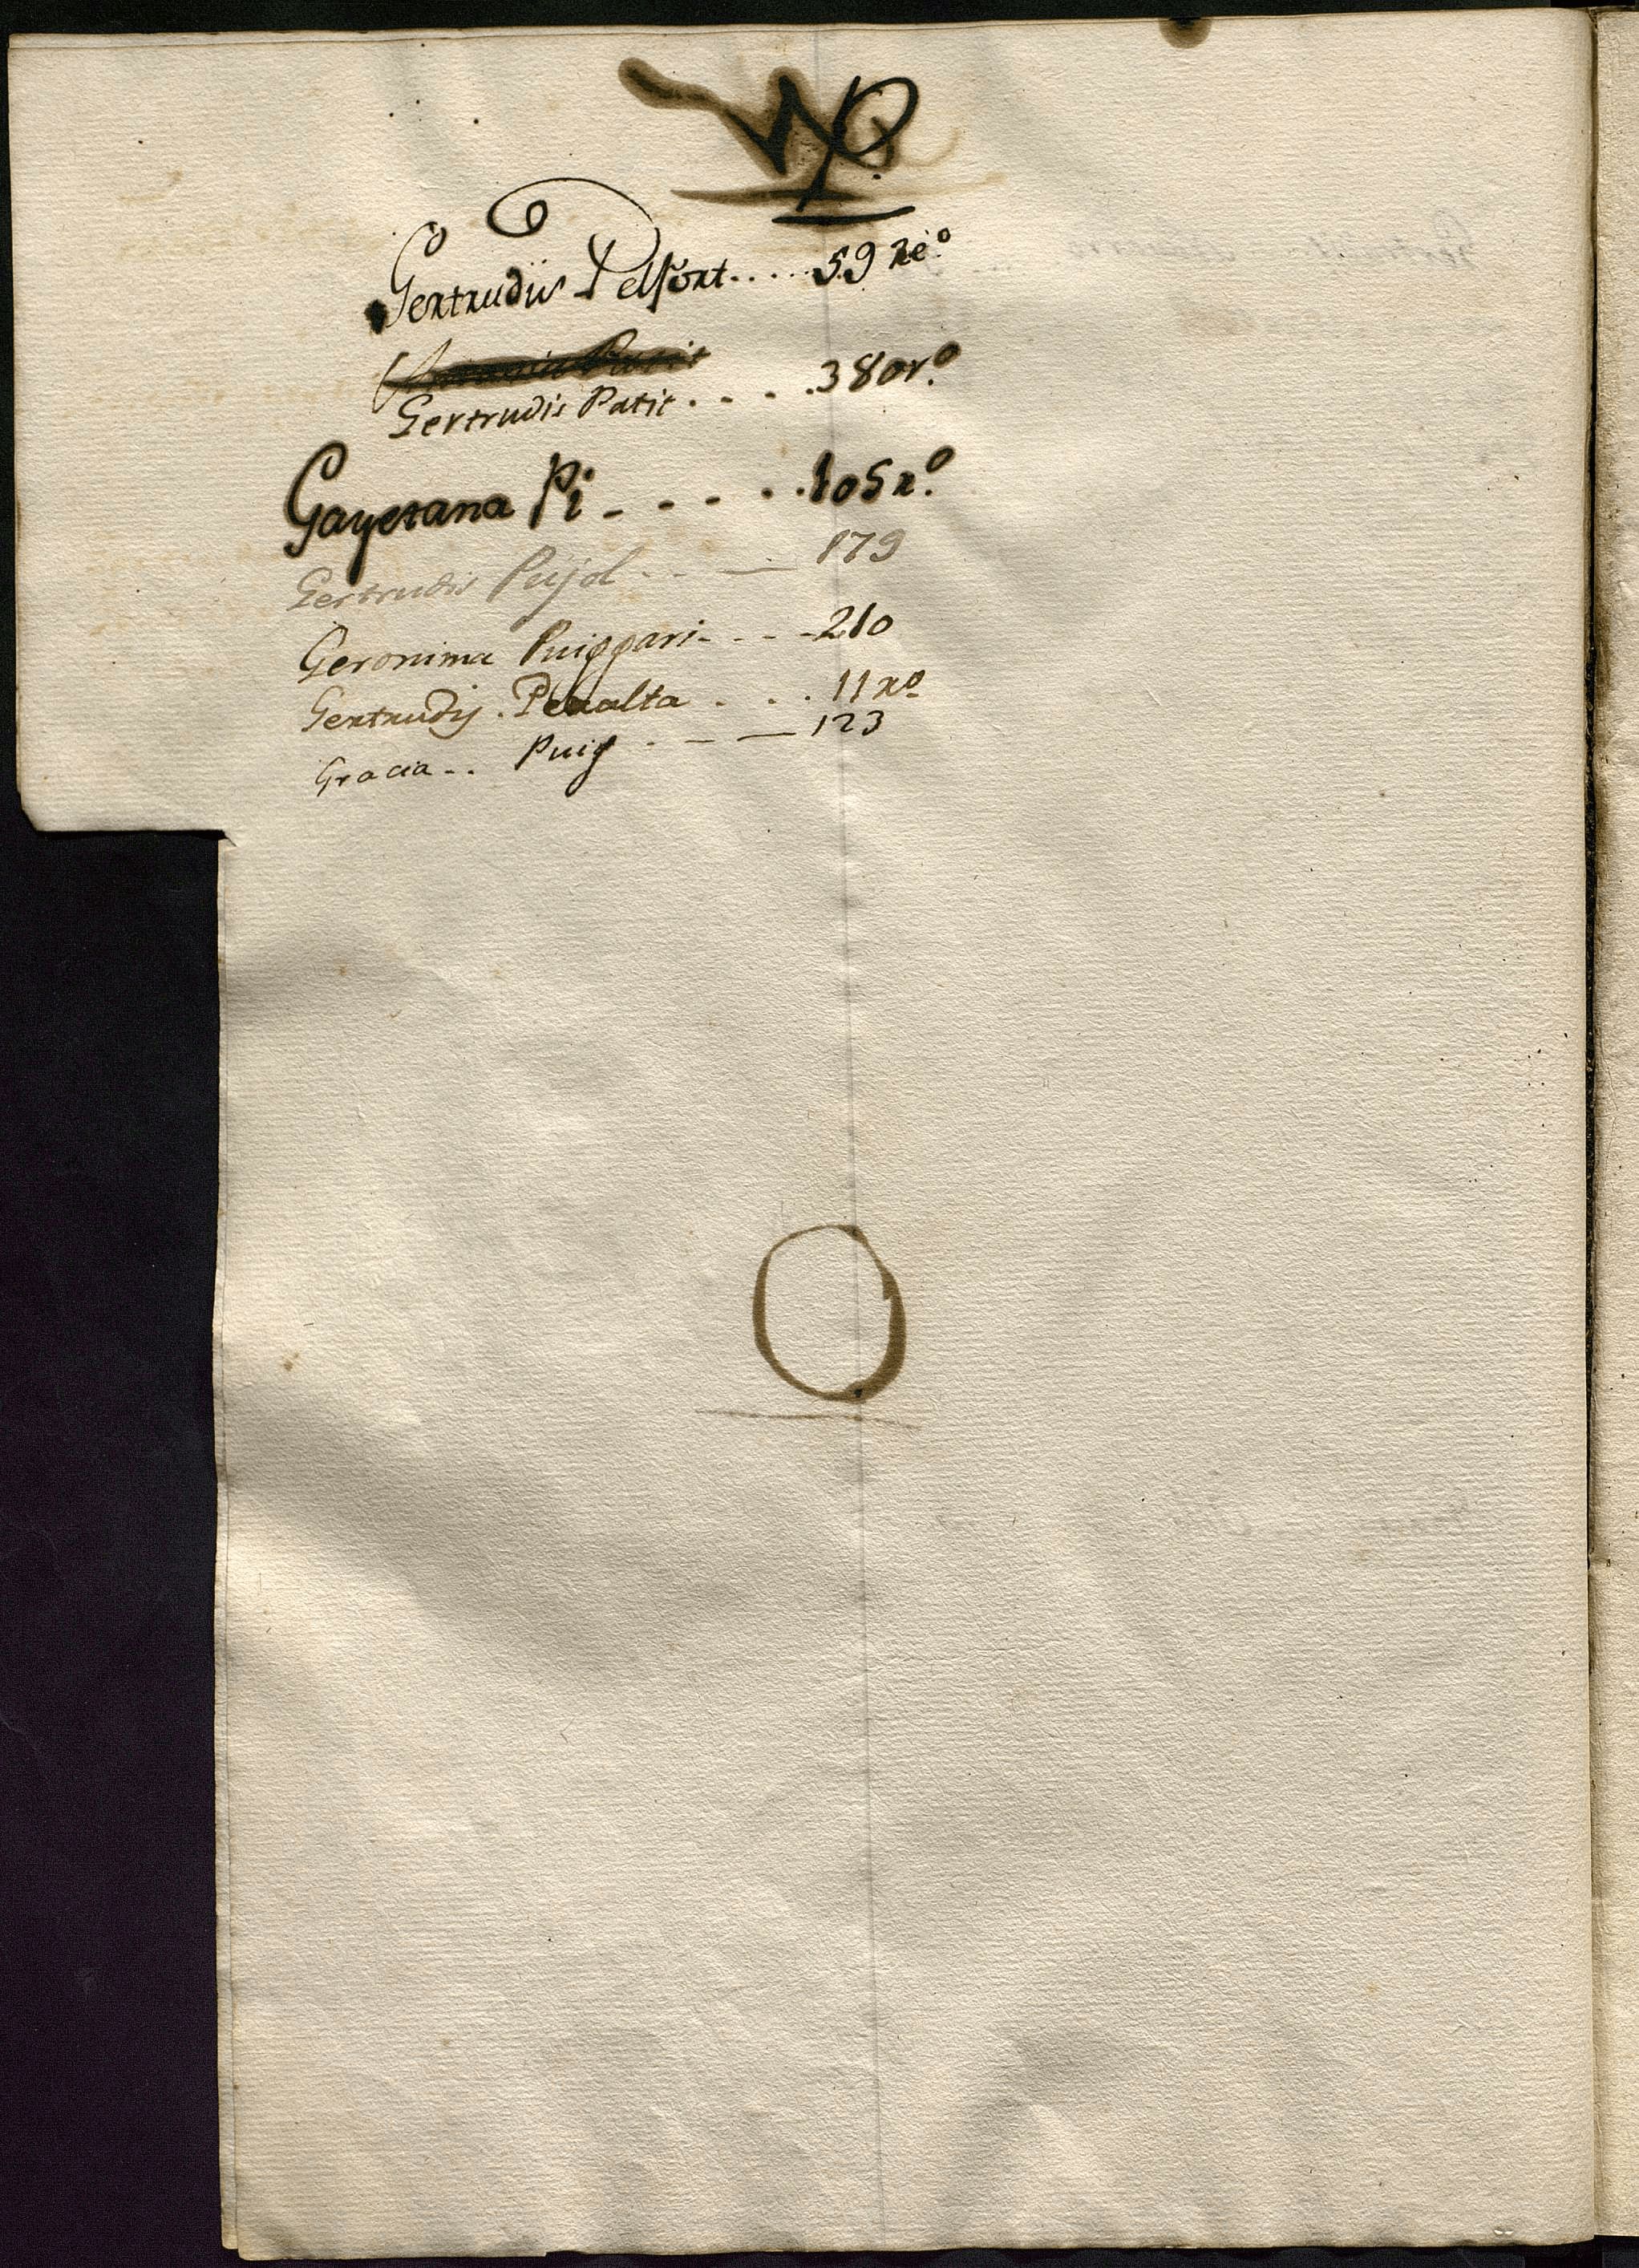 P
Gertrudiis Pelfort.....59 re.º
Gertrudis Patit.....380 r.º
Gayetana Pi - - - - . .105 r.º
Gertrudis Pujol . . - — 179
Geronima Puiggari- - - -210
Gertrudis. Peralta . . . 11 rº
Gracia - . Puig . — — 123
O